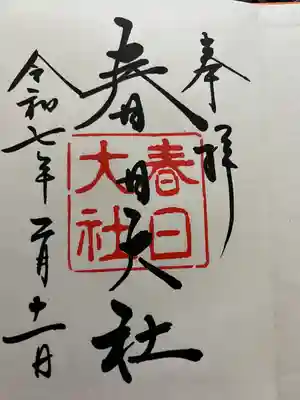 奉拝
春日大社
春日
大社
令和七年二月十一日